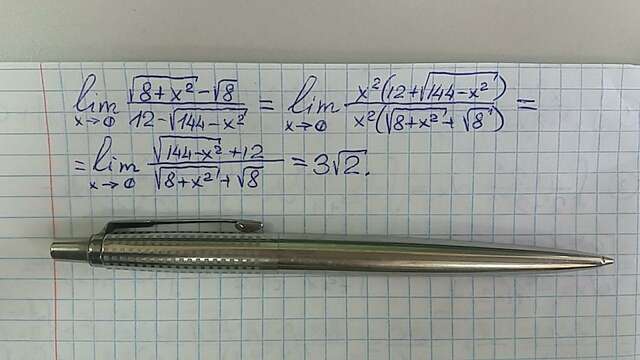 lim x→0 (√(8+x²) - √8)/(12-√(144-x²)) = lim x→0 (x²(12+√(144-x²)))/(x²(√(8+x²)+√8)) =
= lim x→0 (√(144-x²)+12)/(√(8+x²)+√8) = 3√2.